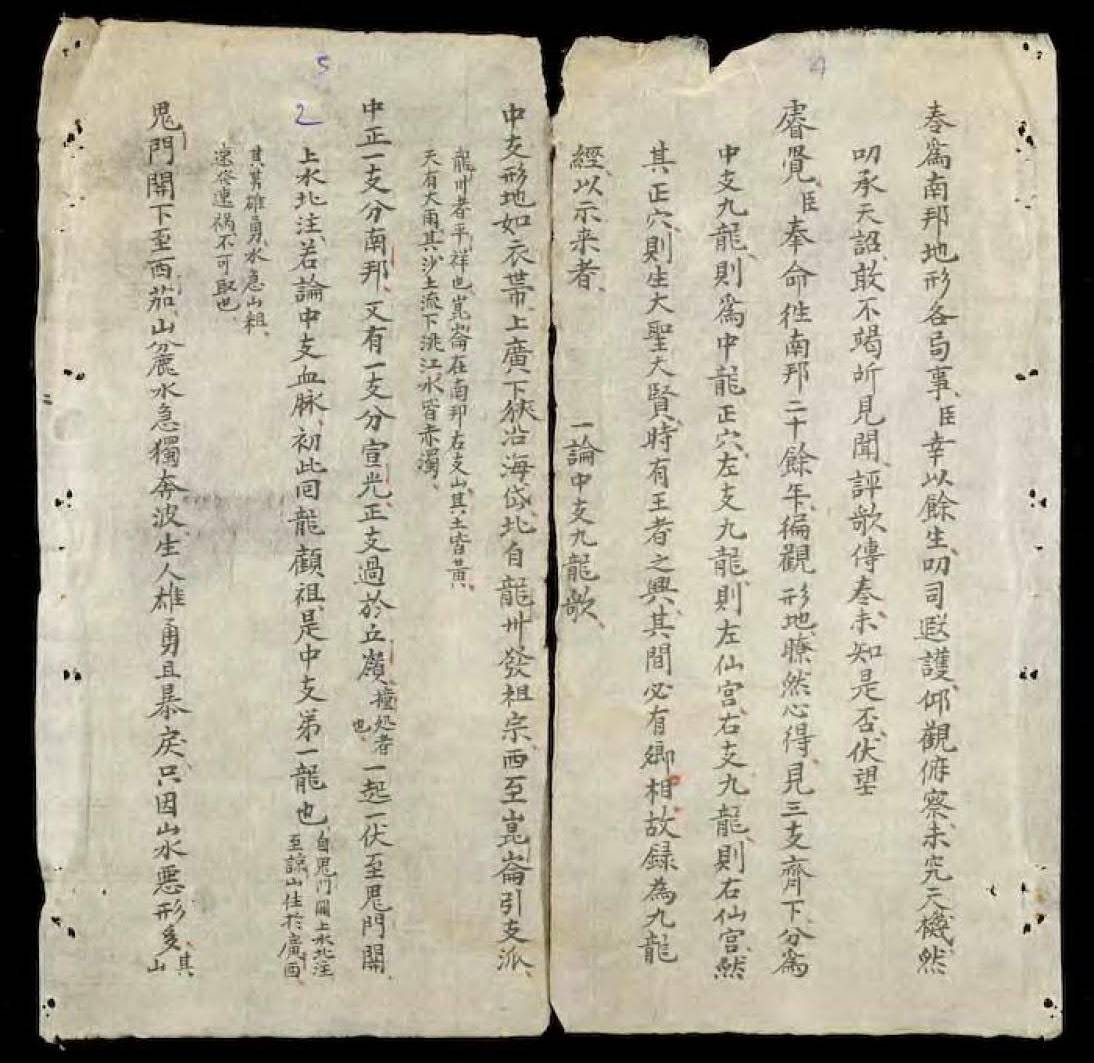 4
奏爲南邦地形各局事、臣幸以餘生、叨司遐護、仰觀俯察、未究天機、然
叨承天詔、敢不竭所見聞、評歌傳奏、未知是否、伏望
睿覽、臣奉命徃南邦二十餘年、徧觀形地、瞭然心得、見三支齊下、分爲
中支九龍、則爲中龍正穴、左支九龍、則左仙宫、右支九龍、則右仙宫、然
其正穴、則生大聖大賢、時有王者之興、其間必有鄉相、故録為九龍
經、以示来者、
一論中支九龍歌、
5
中支形地如衣帶、上廣下狹沿海岱、北自龍卅發祖宗、西至崑崙引支派、
龍卅者平祥也、崑崙在南邦右支山、其土皆黄、
天有大雨、其沙土流下洮江、水皆赤濁、
中正一支分南邦、又有一支分宣光、正支過於丘嶺、撞処者也、一起一伏至鬼門關、
2
上水北注、若論中支血脉、初此回龍顧祖、是中支第一龍也自鬼門關上水北注至諒山住於廣西、
其勇雄勇、水急山粗、
速發速禍不可取也、
鬼門開下至西茄、山分麁水急獨奔波、生人雄勇且暴戾、只因山水惡形多、其山